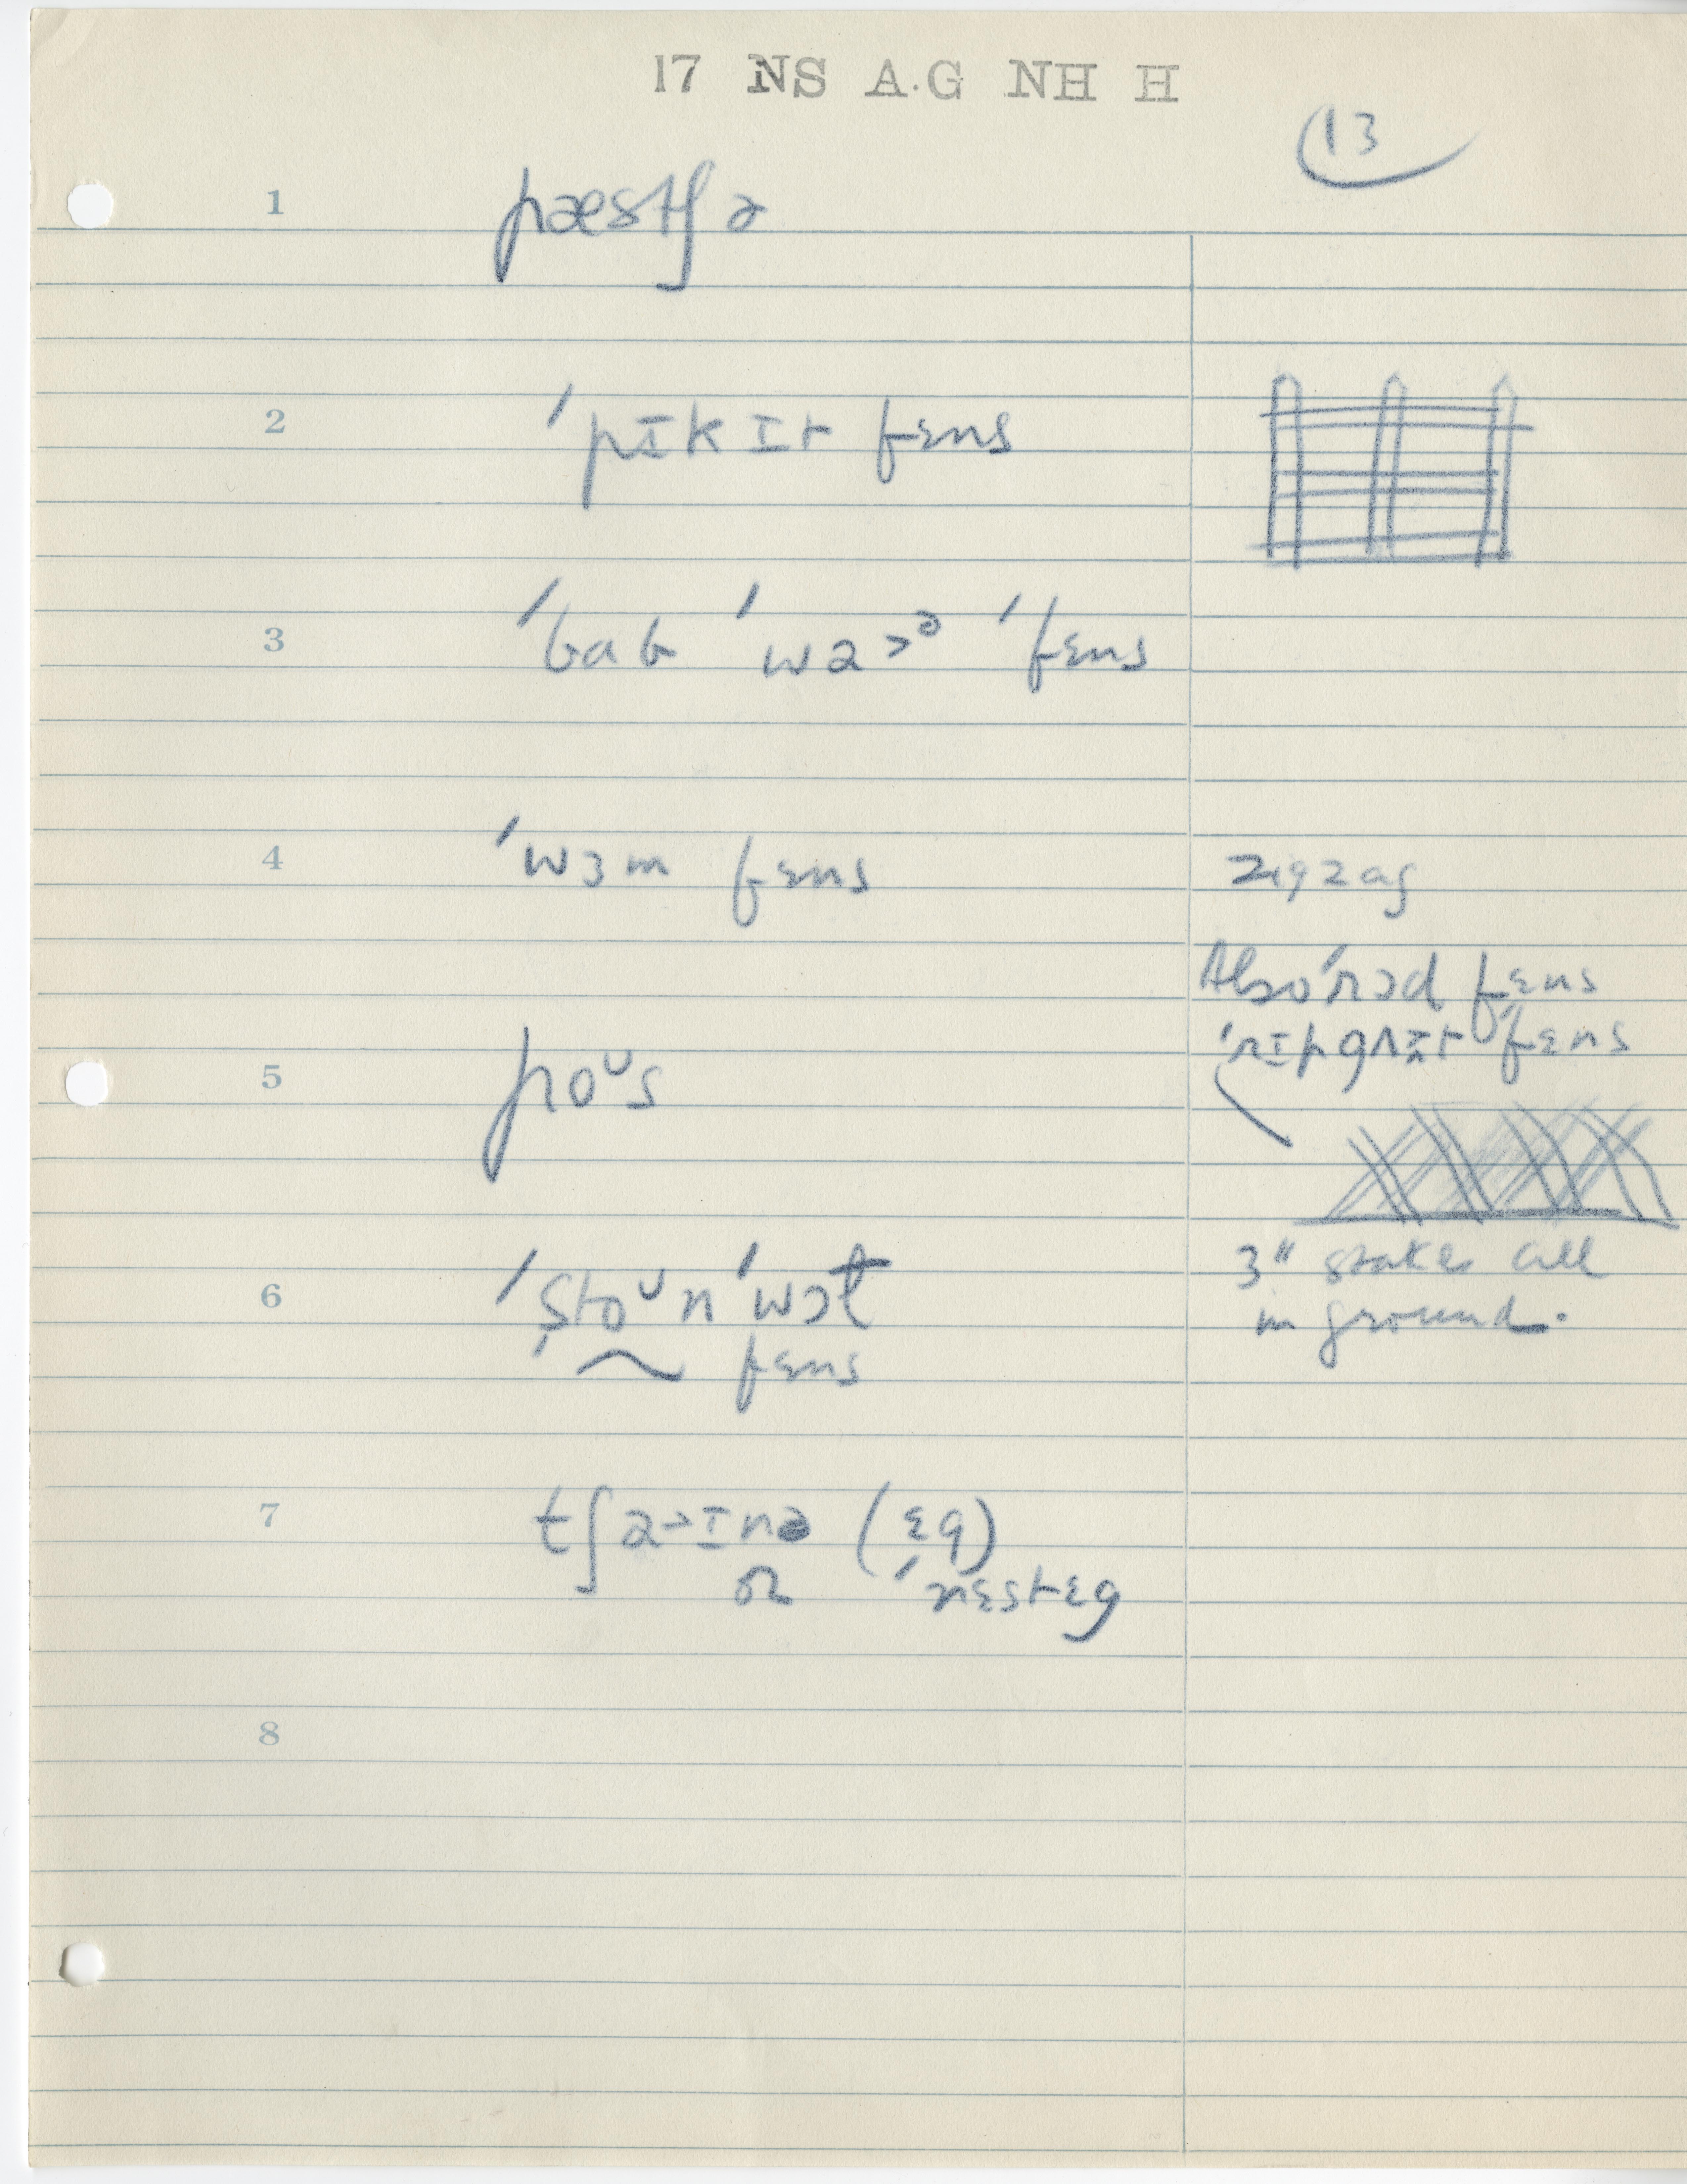 17 NS A.G NH H
13
1 pæstʃə
2 ˈpɪkɪt fɛns
3 ˈbab ˈwaɪᵊ ˈfɛns
4 ˈwɜm fɛns zigzag
Also ˈrɔd fɛns
5 poᵁs
6 ˈstoᵁn ˈwɔɫ 3" stakes all
fɛns in ground.
7 tʃaɪnə (ɛg)
or ˈnɛstɛg
8